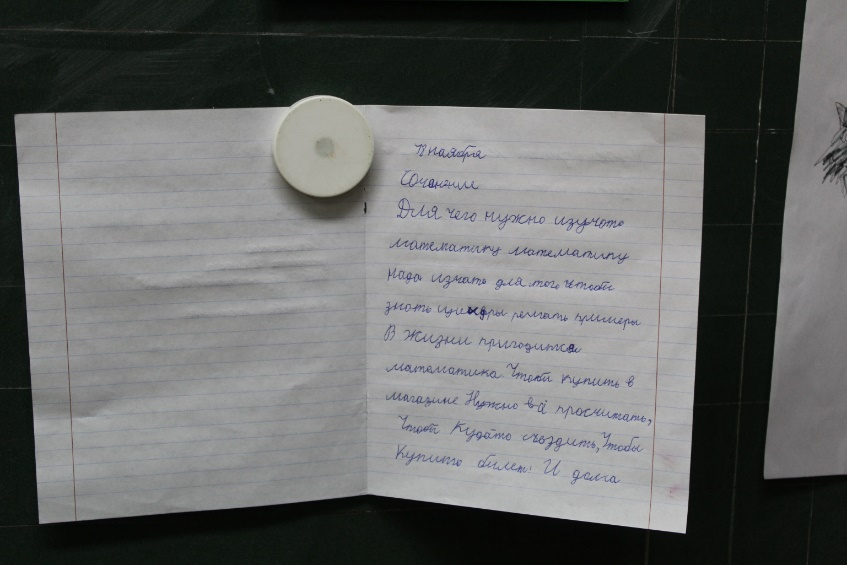 11 ноября
Сочинение
Для чего нужно изучать
математику математику
надо изучать для того чтобы
знать цифры решать примеры
В жизни пригодится
математика Чтоб купить в
магазине Нужно всё просчитать,
Чтоб Кудато съездить, Чтобы
Купить билет! И долга